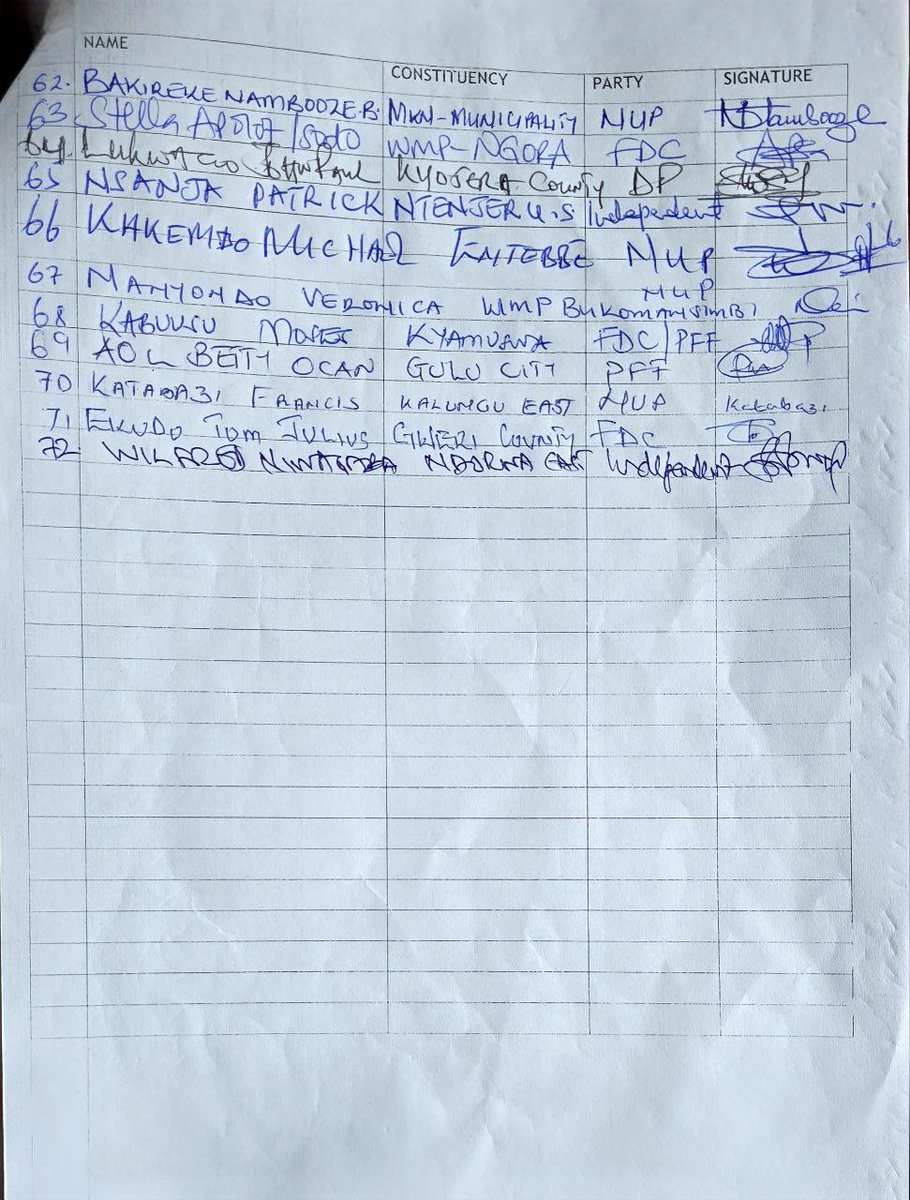 NAME CONSTITUENCY PARTY SIGNATURE
62. BAKIREKE NAMBOOZE.B MKN-MUNICIPALITY NUP
63 Stella Apolot Isodo WMP-NGORA FDC
64. KYOTERA County DP
65 NSANJA PATRICK NTENJERU.S Independent
66 KAKEMBO MICHAEL ENTEBBE NUP
67 NANYONDO VERONICA WMP BUKOMANSIMBI NUP
68 KABUUSU MOSES KYAMUSWA FDC/PFF
69 AOL BETTY OCAN GULU CITY PFF
70 KATABAZI FRANCIS KALUNGU EAST NUP Katabazi
71 EKUDO TOM JULIUS GWERI COUNTY FDC
72 WILFRED NDORWA EAST Independent